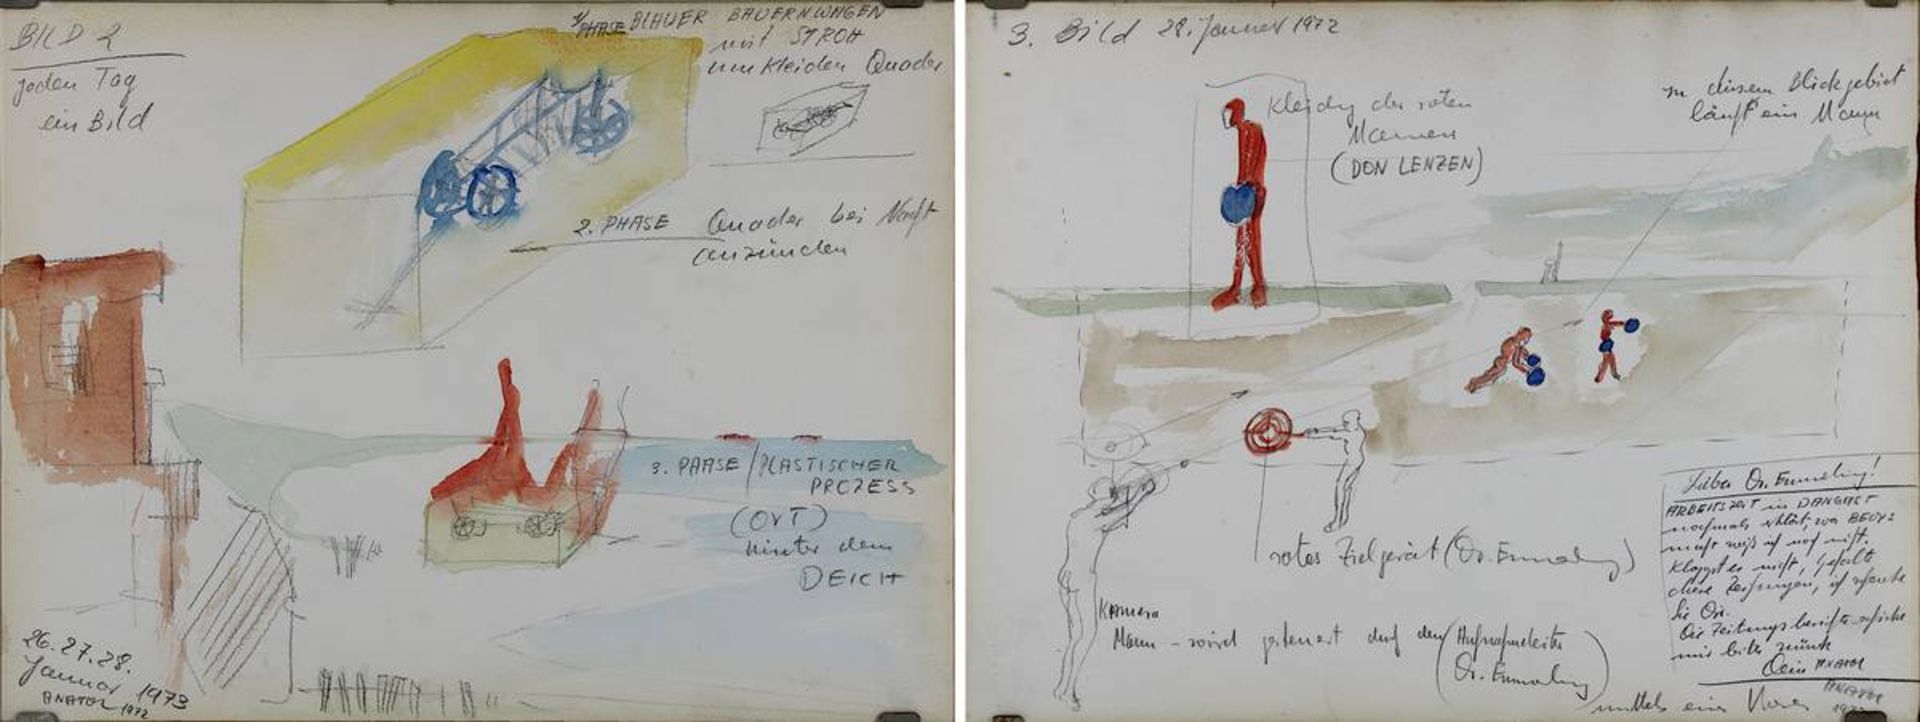 BILD 2
jeden Tag
ein Bild
1/PHASE BLAUER BAUERNWAGEN
mit STROH
umkleiden Quader
2. PHASE Quader bei Nacht
anzünden
3. PHASE / PLASTISCHER
PROZESS
(ORT)
hinter dem
DEICH
26. 27. 28.
Januar 1973
ANATOL 1972
3. Bild 28. Januar 1972
Kleidung des roten
Mannes
(DON LENZEN)
in diesem Blickgebiet
läuft ein Mann
rotes Zielgerät (Dr. Emmeling)
Kamera
Mann - wird gesteuert durch den (Aufnahmeleiter
Dr. Emmeling)
mittels eines
Lieber Dr. Emmeling!
ARBEITSZEIT in DANGAST
nochmals erklärt, was BEUYS
macht weiß ich noch nicht.
Klappt es nicht,
diese Zeichnungen, ich schenke
Sie Dir.
Die Zeitungsberichte schicke
mir bitte zurück
Dein ANATOL
ANATOL